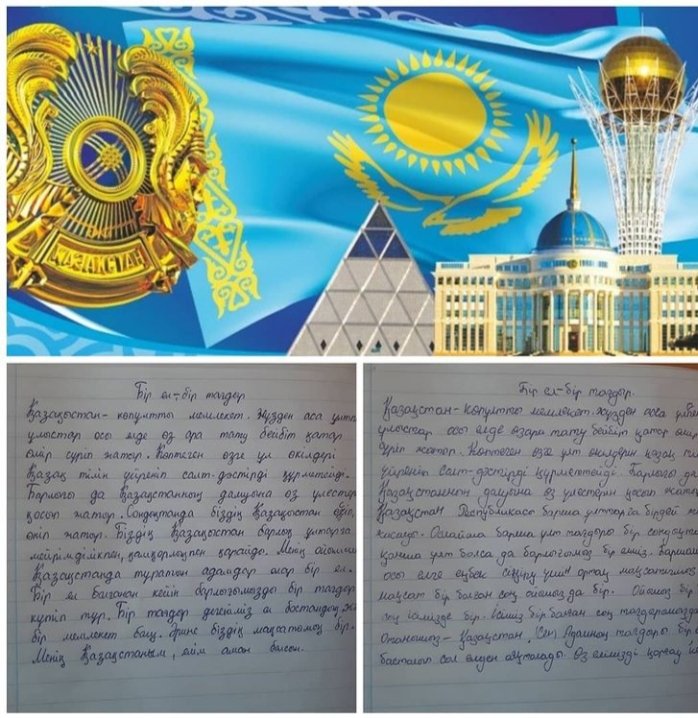 ҚАЗАҚСТАН
Бір ел-бір тағдыр
Қазақстан - көпұлтты мемлекет. Жүзден аса ұлттар
ұлыстар осы елде өз ара тату бейбіт қатар
өмір сүріп жатыр. Көптеген өзге ұл өкілдері
Қазақ тілін үйреніп салт-дәстірді құрметтейді.
Барлығы да Қазақстанның дамуына өз үлестерін
қосып жатыр. Сондықтанда біздің Қазақыстан өсіп,
өніп жатыр. Біздің Қазақыстан барлық ұлтарға
мейрімділікпен, қамқорлықпен қарайды. Менің ойымша
Қазақстанда тұратын адамдар олар бір ел.
Бір ел болғанан кейін барлығымызды бір тағдыр
күтіп тұр. Бір тағдыр дегеніміз ол бостандық
бір мемлекет басш. біздің мақсатымыз бір.
Менің Қазақстаным, елім аман болсын.
Бір ел-бір тағдыр.
Қазақстан - көпұлтты мемлекет. Жүзден аса ұлттар
ұлыстар осы елде өзара тату бейбіт қатар өмір
сүріп жатыр. Көптеген өзге ұлт өкілдері қазақ
үйреніп салт-дәстірді құрметтейді. Барлығы да
Қазақстанның дамуына өз үлестерін қосып
Қазақстан Республикасы барша ұлттарға бірдей
жасауды. Осылайша барша ұлт тағдыры бір
қанша ұлт болса да барлығымыз бір елміз.
осы елге еңбек сіңіру үшін ортақ мақсатымыз
мақсат бір болған соң ойымыз да бір. Ойымыз бір
соң ісімізде бір. Ісіміз бір болған соң тағдырымызда
Отанымыз - Қазақстан. Адамның тағдыры бір
басталып сол елден аяқталады. Өз елімізді қорғау